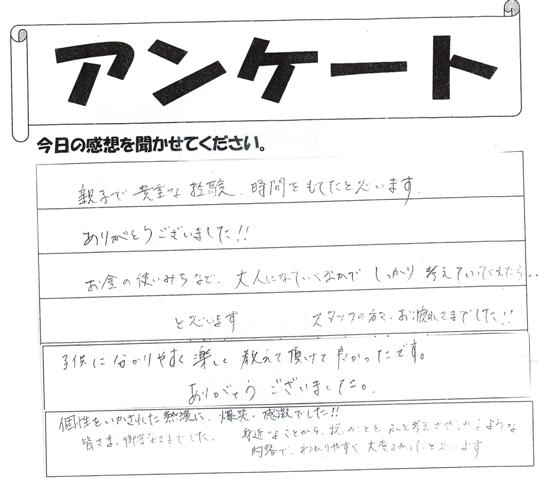 アンケート
今日の感想を聞かせてください。
親子で貴重な経験、時間をもてたと思います。
ありがとうございました!!
お金の使いみちなど、大人になっていくなかでしっかり考えていってくれたら...
と思います スタッフの方々、お疲れさまでした!!
子供に分かりやすく楽しく教えて頂けて良かったです。
ありがとうございました。
個性をいかされた熱演に、爆笑、感激でした!!
皆さま、御苦労さまでした。 身近なことから、税のことを、ふと考えさせられるような
内容で、わかりやすく大変よかったと思います